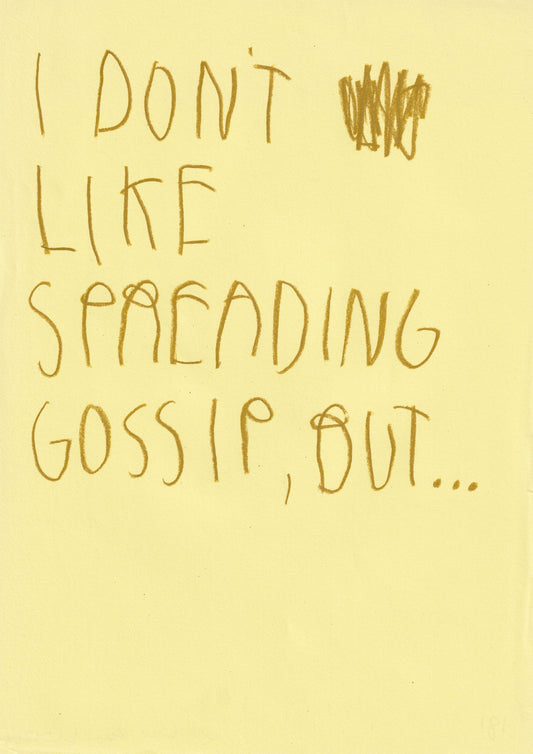 I DON'T
LIKE
SPREADING
GOSSIP, BUT...